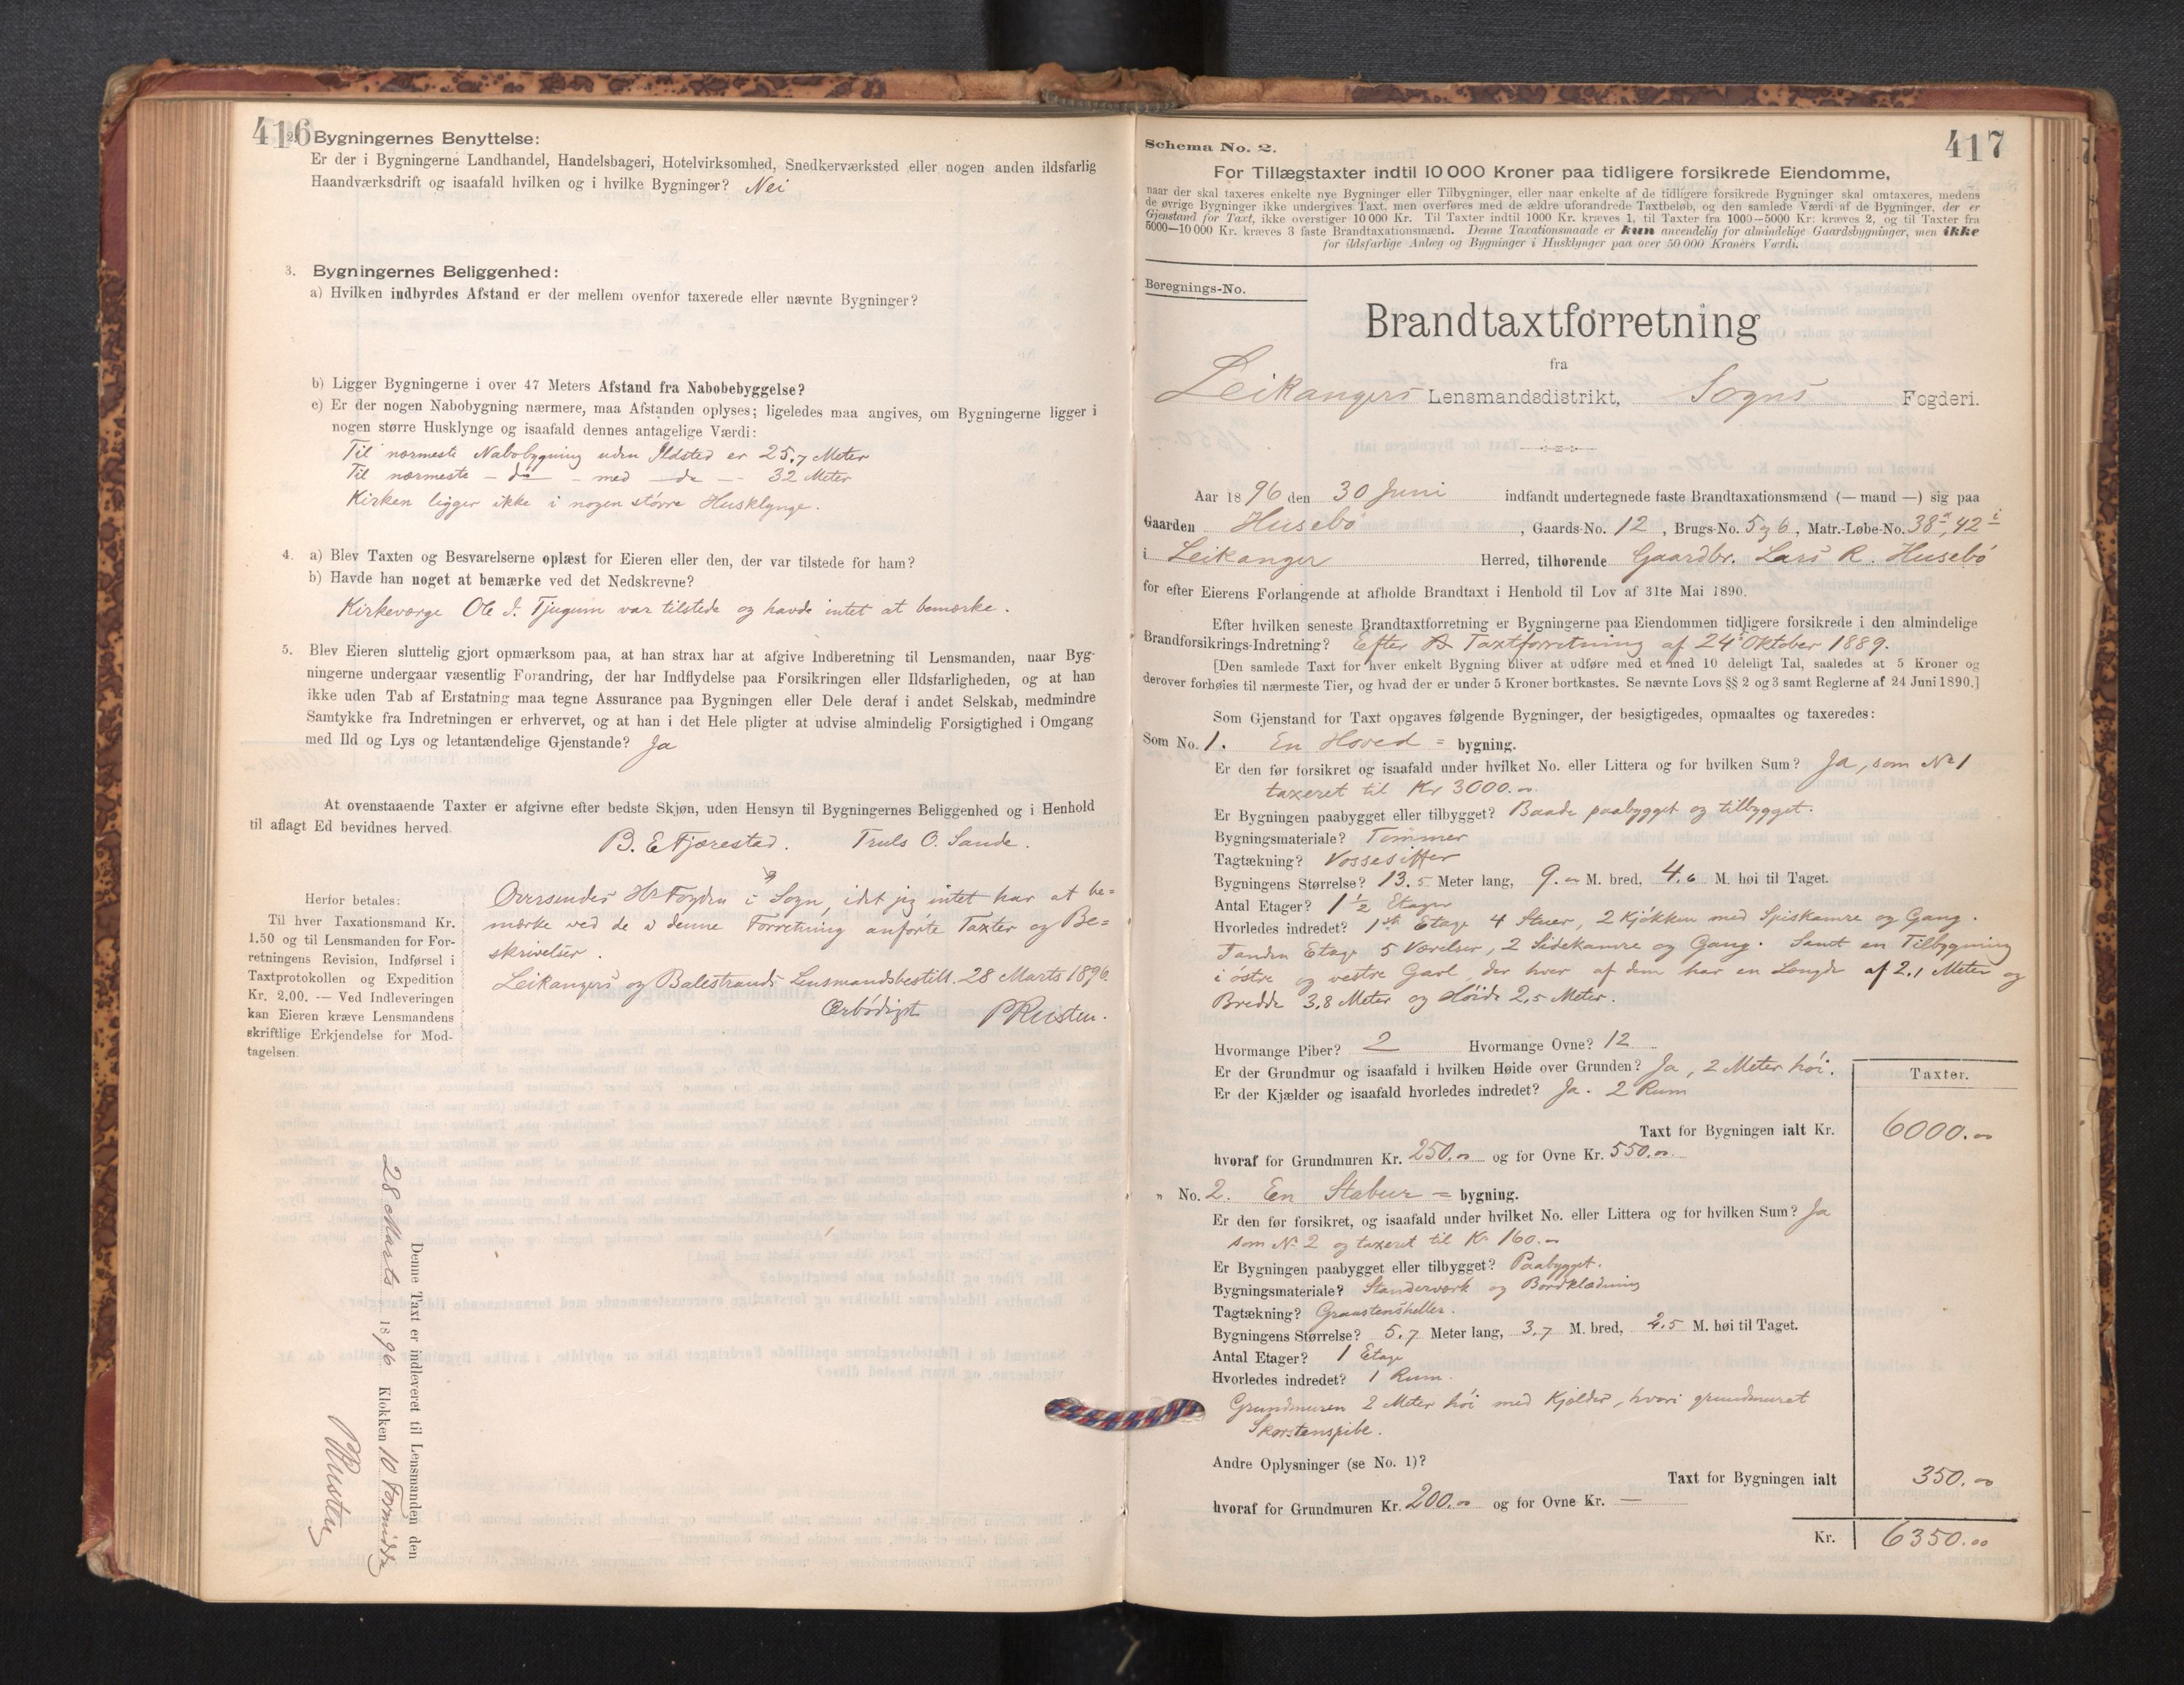 416
2. Bygningernes Benyttelse:
Er der i Bygningerne Landhandel, Handelsbageri, Hotelvirksomhed, Snedkerværksted eller nogen anden ildsfarlig
Haandværksdrift og isaafald hvilken og i hvilke Bygninger? Nei
3. Bygningernes Beliggenhed:
a) Hvilken indbyrdes Afstand er der mellem ovenfor taxerede eller nævnte Bygninger?
b) Ligger Bygningerne i over 47 Meters Afstand fra Nabobebyggelse?
c) Er der nogen Nabobygning nærmere, maa Afstanden oplyses; ligeledes maa angives, om Bygningerne ligger i
nogen større Husklynge og isaafald dennes antagelige Værdi:
Til nærmeste Nabobygning uden Ildsted er 25,7 Meter
Til nærmeste - do - med - do - - 32 Meter
Kirken ligger ikke i nogen større Husklynge.
4. a) Blev Taxten og Besvarelserne oplæst for Eieren eller den, der var tilstede for ham?
b) Havde han noget at bemærke ved det Nedskrevne?
Kirkeværge Ole J. Tjugum var tilstede og havde intet at bemærke.
5. Blev Eieren sluttelig gjort opmærksom paa, at han strax har at afgive Indberetning til Lensmanden, naar Byg-
ningerne undergaar væsentlig Forandring, der har Indflydelse paa Forsikringen eller Ildsfarligheden, og at han
ikke uden Tab af Erstatning maa tegne Assurance paa Bygningen eller Dele deraf i andet Selskab, medmindre
Samtykke fra Indretningen er erhvervet, og at han i det Hele pligter at udvise almindelig Forsigtighed i Omgang
med Ild og Lys og letantændelige Gjenstande? Ja
At ovenstaaende Taxter er afgivne efter bedste Skjøn, uden Hensyn til Bygningernes Beliggenhed og i Henhold
til aflagt Ed bevidnes herved.
B. E Fjærestad. Truls O. Sande.
Herfor betales:
Til hver Taxationsmand Kr.
1.50 og til Lensmanden for For-
retningens Revision, Indførsel i
Taxtprotokollen og Expedition
Kr. 2.00. — Ved Indleveringen
kan Eieren kræve Lensmandens
skriftlige Erkjendelse for Mod-
tagelsen.
Oversendes Hr Fogden i Sogn, idet jeg intet har at be=
mærke ved de i denne Forretning anførte Taxter og Be=
skrivelser.
Leikangers og Balestrands Lensmandsbestill. 28 Marts 1896.
Ærbødigst P Rusten.
Denne Taxt er indleveret til Lensmanden den
28 Marts 1896 Klokken 10 Formiddg
P Rusten
417
Schema No. 2.
For Tillægstaxter indtil 10 000 Kroner paa tidligere forsikrede Eiendomme,
naar der skal taxeres enkelte nye Bygninger eller Tilbygninger, eller naar enkelte af de tidligere forsikrede Bygninger skal omtaxeres, medens
de øvrige Bygninger ikke undergives Taxt, men overføres med de ældre uforandrede Taxtbeløb, og den samlede Værdi af de Bygninger, der er
Gjenstand for Taxt, ikke overstiger 10 000 Kr. Til Taxter indtil 1000 Kr. kræves 1, til Taxter fra 1000—5000 Kr. kræves 2, og til Taxter fra
5000—10 000 Kr. kræves 3 faste Brandtaxationsmænd. Denne Taxationsmaade er kun anvendelig for almindelige Gaardsbygninger, men ikke
for ildsfarlige Anlæg og Bygninger i Husklynger paa over 50 000 Kroners Værdi.
Beregnings-No.
Brandtaxtforretning
fra
Leikangers Lensmandsdistrikt, Sogns Fogderi.
Aar 1896 den 30 Juni indfandt undertegnede faste Brandtaxationsmænd (— mand —) sig paa
Gaarden Husebø, Gaards-No. 12, Brugs-No. 5 og 6, Matr.-Løbe-No. 38a, 42i
i Leikanger Herred, tilhørende Gaardbr. Lars R. Husebø
for efter Eierens Forlangende at afholde Brandtaxt i Henhold til Lov af 31te Mai 1890.
Efter hvilken seneste Brandtaxtforretning er Bygningerne paa Eiendommen tidligere forsikrede i den almindelige
Brandforsikrings-Indretning? Efter Taxtforretning af 24de Oktober 1889.
[Den samlede Taxt for hver enkelt Bygning bliver at udføre med et med 10 deleligt Tal, saaledes at 5 Kroner og
derover forhøies til nærmeste Tier, og hvad der er under 5 Kroner bortkastes. Se nævnte Lovs §§ 2 og 3 samt Reglerne af 24 Juni 1890.]
Som Gjenstand for Taxt opgaves følgende Bygninger, der besigtigedes, opmaaltes og taxeredes:
Som No. 1. En Hoved = bygning.
Er den før forsikret og isaafald under hvilket No. eller Littera og for hvilken Sum? Ja, som No 1
taxeret til Kr 3000.00
Er Bygningen paabygget eller tilbygget? Baade paabygget og tilbygget.
Bygningsmateriale? Tømmer
Tagtækning? Vosseskiffer
Bygningens Størrelse? 13.5 Meter lang, 9.00 M. bred, 4.6 M. høi til Taget.
Antal Etager? 1 1/2 Etager
Hvorledes indredet? 1ste Etage 4 Stuer, 2 Kjøkken med Spiskamre og Gang.
Janden Etage 5 Værelser, 2 Sidekamre og Gang. Samt en Tilbygning
i østre og vestre Gavl, der hver af dem har en Længde af 2.1 Meter og
Bredde 3,8 Meter og Høide 2,5 Meter.
Hvormange Piber? 2 Hvormange Ovne? 12
Er der Grundmur og isaafald i hvilken Høide over Grunden? Ja, 2 Meter høi.
Er der Kjælder og isaafald hvorledes indredet? Ja. 2 Rum
Taxter.
Taxt for Bygningen ialt Kr. 6000.00
hvoraf for Grundmuren Kr. 250.00 og for Ovne Kr. 550.00
" No. 2. En Stabur = bygning.
Er den før forsikret, og isaafald under hvilket No. eller Littera og for hvilken Sum? Ja
som No 2 og taxeret til Kr 160.00
Er Bygningen paabygget eller tilbygget? Paabygget.
Bygningsmateriale? Standerværk og Bordklædning
Tagtækning? Graastensheller.
Bygningens Størrelse? 5,7 Meter lang, 3,7 M. bred, 2.5 M. høi til Taget.
Antal Etager? 1 Etage
Hvorledes indredet? 1 Rum.
Grundmuren 2 Meter høi med Kjælder, hvori grundmuret
Skorstenspibe.
Andre Oplysninger (se No. 1)?
Taxt for Bygningen ialt 350.00
hvoraf for Grundmuren Kr. 200.00 og for Ovne Kr. —
Kr. 6350.00